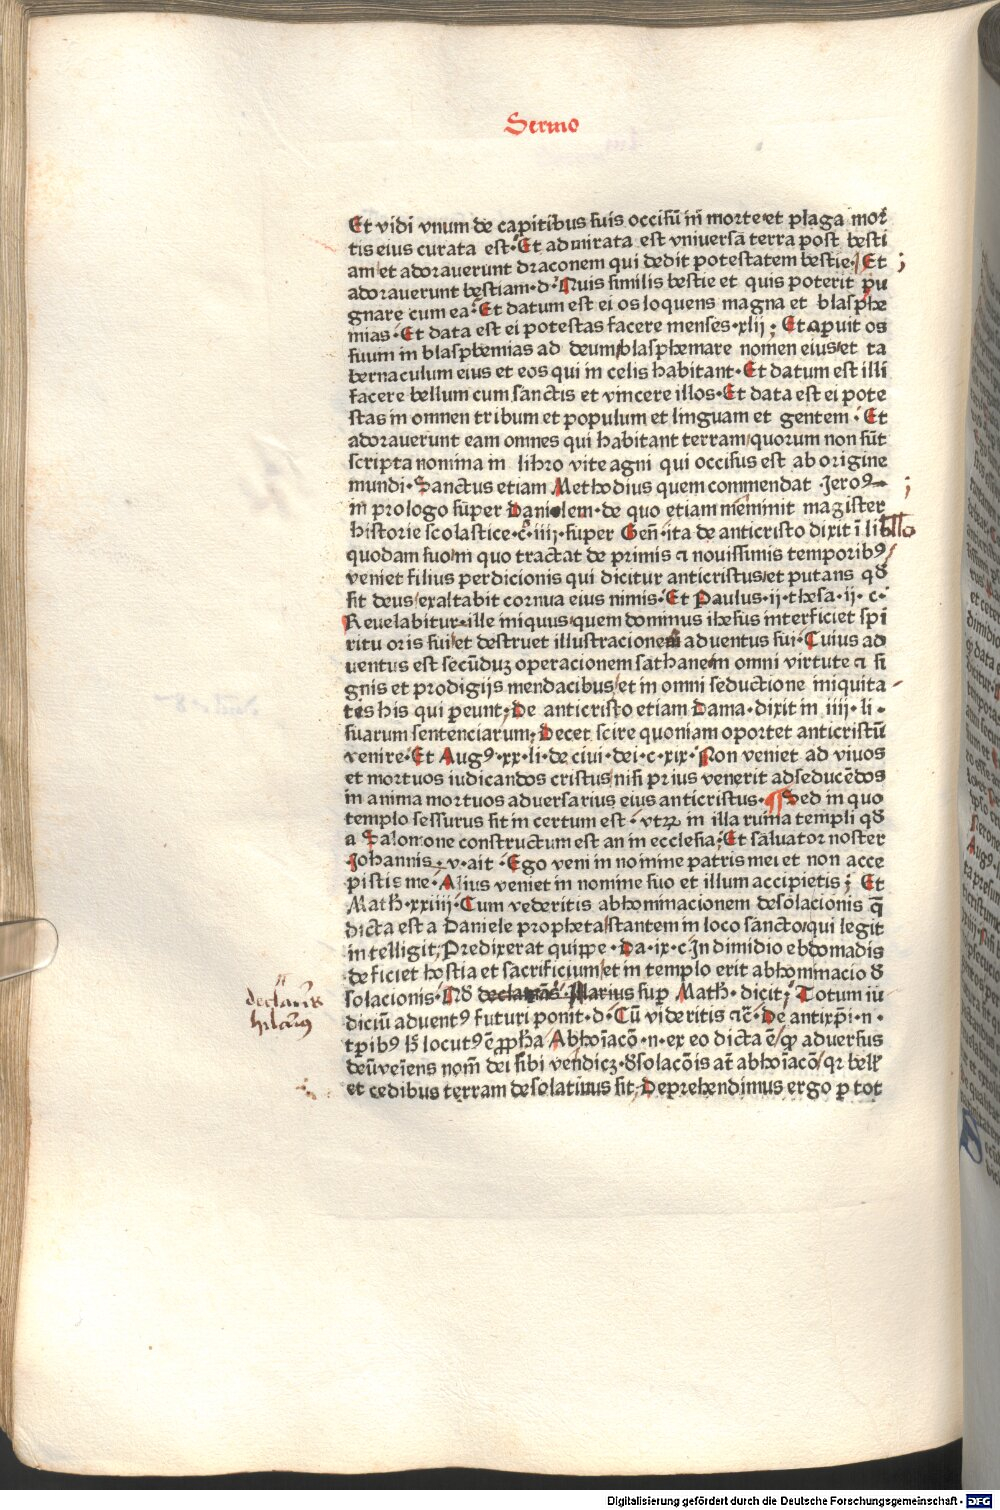 Sermo
Et vidi vnum de capitibus suis occisū in morteꝫ et plaga mor
tis eius curata est. Et admirata est vniuersa terra post besti
am et adorauerunt draconem qui dedit potestatem bestie. Et
adorauerunt bestiam. d. Quis similis bestie et quis poterit pu
gnare cum ea. Et datum est ei os loquens magna et blasphe
mias. Et data est ei potestas facere menses .xlij. Et apuit os
suum in blasphemias ad deum/blasphemare nomen eius/et ta
bernaculum eius et eos qui in celis habitant. Et datum est illi
facere bellum cum sanctis et vincere illos. Et data est ei pote
stas in omnen tribum et populum et linguam et gentem. Et
adorauerunt eam omnes qui habitant terram/quorum non sūt
scripta nomina in libro vite agni qui occisus est ab origine
mundi. Sanctus etiam Methodius quem commendat Jeroꝰ
in prologo super Danielem. de quo etiam meminit magister
historie scolastice. c. iij. super Geñ. ita de anticristo dixit ī libello
quodam suo/in quo tractat de primis ⁊ nouissimis temporibꝰ/
veniet filius perdicionis qui dicitur anticristus/et putans qd̄
sit deus/exaltabit cornua eius nimis. Et Paulus .ij. thesa. ij. c.
Reuelabitur ille iniquus/quem dominus ihesus interficiet spi
ritu oris sui/et destruet illustracionem aduentus sui. Cuius ad
uentus est secūduꝫ operacionem sathane in omni virtute ⁊ si
gnis et prodigijs mendacibus/et in omni seductione iniquita
tis his qui peunt. De anticristo etiam Dama. dixit in .iiij. li.
suarum sentenciarum. Decet scire quoniam oportet anticristū
venire. Et Augꝰ. xx. li. de ciui. dei. c. xix. Non veniet ad viuos
et mortuos iudicandos cristus/nisi prius venerit ad seducēdos
in anima mortuos aduersarius eius anticristus. ¶ Sed in quo
templo sessurus sit in certum est. vtꝝ in illa ruina templi qd̄
a Salomone constructum est an in ecclesia. Et saluator noster
Johannis. v. ait. Ego veni in nomine patris mei et non acce
pistis me. Alius veniet in nomine suo et illum accipietis; Et
Math. xxiiij. Cum videritis abhominacionem desolacionis q̄
dicta est a Daniele propheta/stantem in loco sancto/qui legit
intelligit; Predixerat quippe. Da. ix. c. In dimidio ebdomadis
deficiet hostia et sacrificium/et in templo erit abhominacio d̄
solacionis. Qd̄ declarās Hlarius sup Math. dicit; Totum iu
declarās
hilariꝰ
diciū aduentꝰ futuri ponit. d. Cū videritis ⁊c̄. De antixp̄i. n.
tp̄ibꝰ h̄ locutꝰ ē ꝓpha Abhoīacō. n. ex eo dicta ē/ꝙ aduersus
deū veīens nom̄ dei sibi vendicꝫ. d̄solacōis at̄ abhoīacō/qr bell̄
et cedibus terram desolaturus sit; Deprehendimus ergo p tot
Digitalisierung gefördert durch die Deutsche Forschungsgemeinschaft - DFG